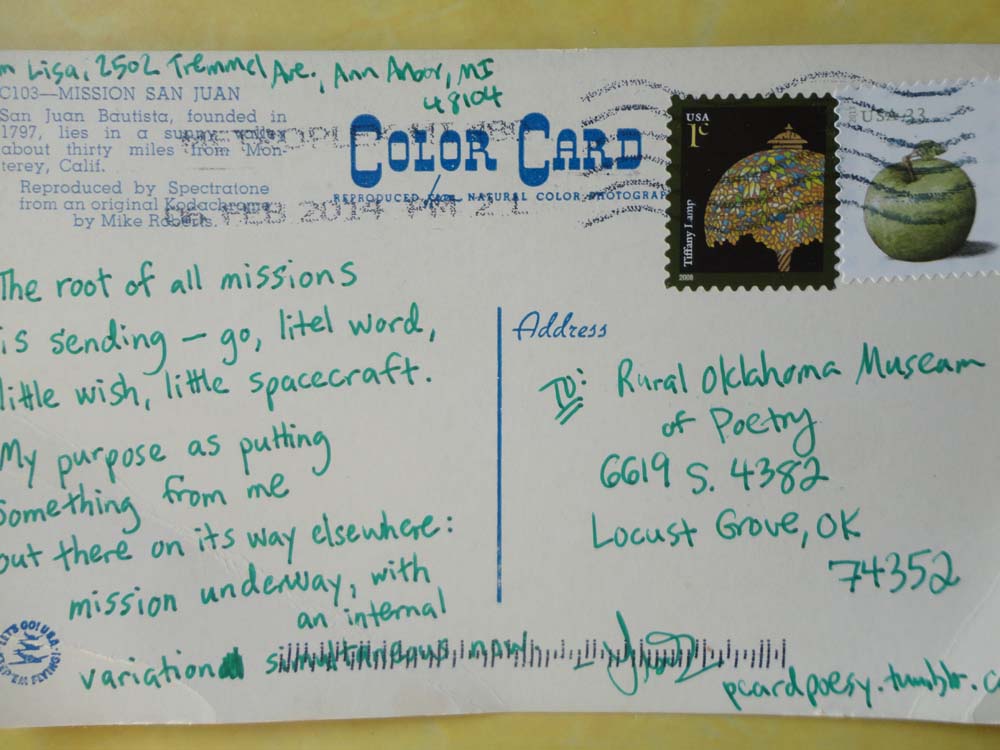 m Lisa, 2502 Tremmel Ave., Ann Arbor, MI
48104
C103—MISSION SAN JUAN
San Juan Bautista, founded in
1797, lies in a sunny valley
about thirty miles from Mon-
terey, Calif.
Reproduced by Spectratone
from an original Kodachrome
by Mike Roberts.
COLOR CARD
REPRODUCED from NATURAL COLOR PHOTOGRAP
FEB 2014 PM 2 L
USA
1c
Tiffany Lamp
2008
USA 33
The root of all missions
is sending – go, litel word,
little wish, little spacecraft.
My purpose as putting
something from me
out there on its way elsewhere:
mission underway, with
an internal
variational simultaneous now.
LET'S GO! USA
KEEP 'EM FLYING!
Address
TO: Rural Oklahoma Museum
of Poetry
6619 S. 4382
Locust Grove, OK
74352
pcardpoesy.tumblr.c